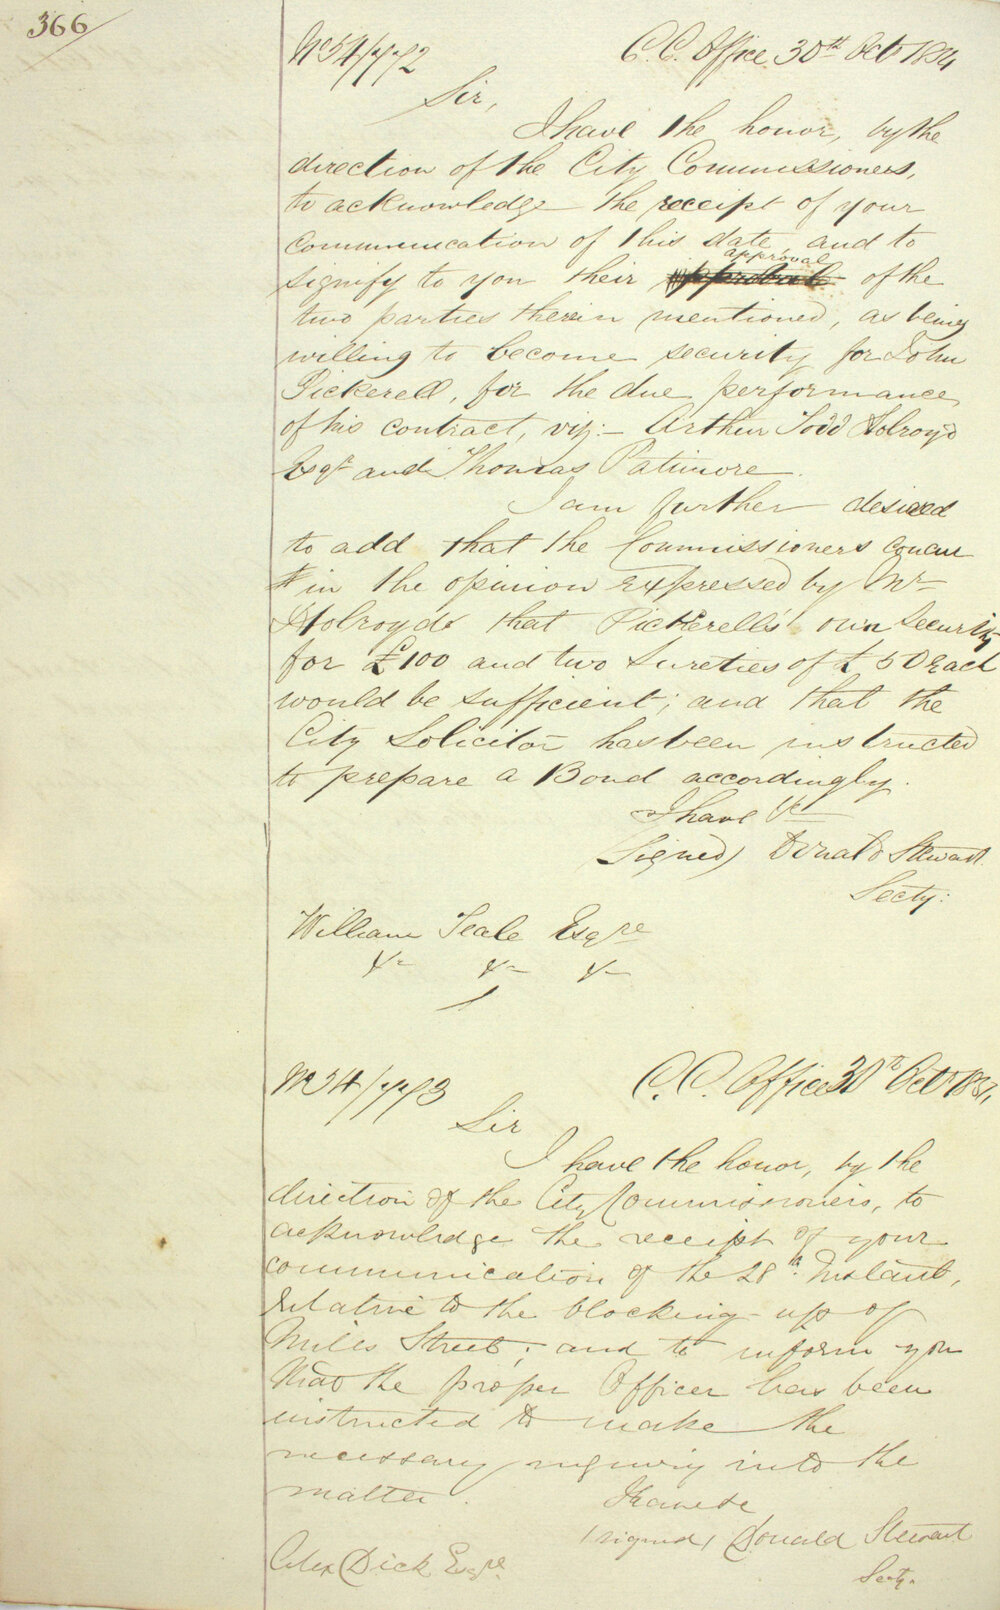 366
No 54/772 C. C. Office 30th Oct 1854
Sir,
I have the honor, by the
direction of the City Commissioners,
to acknowledge the receipt of your
communication of this date, and to
approval
signify to you their of the
two parties therein mentioned, as being
willing to become security for John
Pickerell, for the due performance
of his contract, viz:- Arthur Todd Holroyd
Esqr and Thomas Patimore.
I am further desired
to add that the Commissioners concur
in the opinion expressed by Mr
Holroyd that Pickerell's own security
for £100 and two sureties of £50 each
would be sufficient; and that the
City Solicitor has been instructed
to prepare a Bond accordingly.
I have &c
(Signed) Donald Stewart
Secty:
William Teale Esqre
&c &c &c
No 54/773 C. C. Office 30th Oct 1854
Sir
I have the honor, by the
direction of the City Commissioners, to
acknowledge the receipt of your
communication of the 28th Instant,
relative to the blocking up of
Mill's Street; and to inform you
that the proper Officer has been
instructed to make the
necessary inquiry into the
matter.
I have &c
(signed) Donald Stewart
Secty.
Alex Dick Esqre